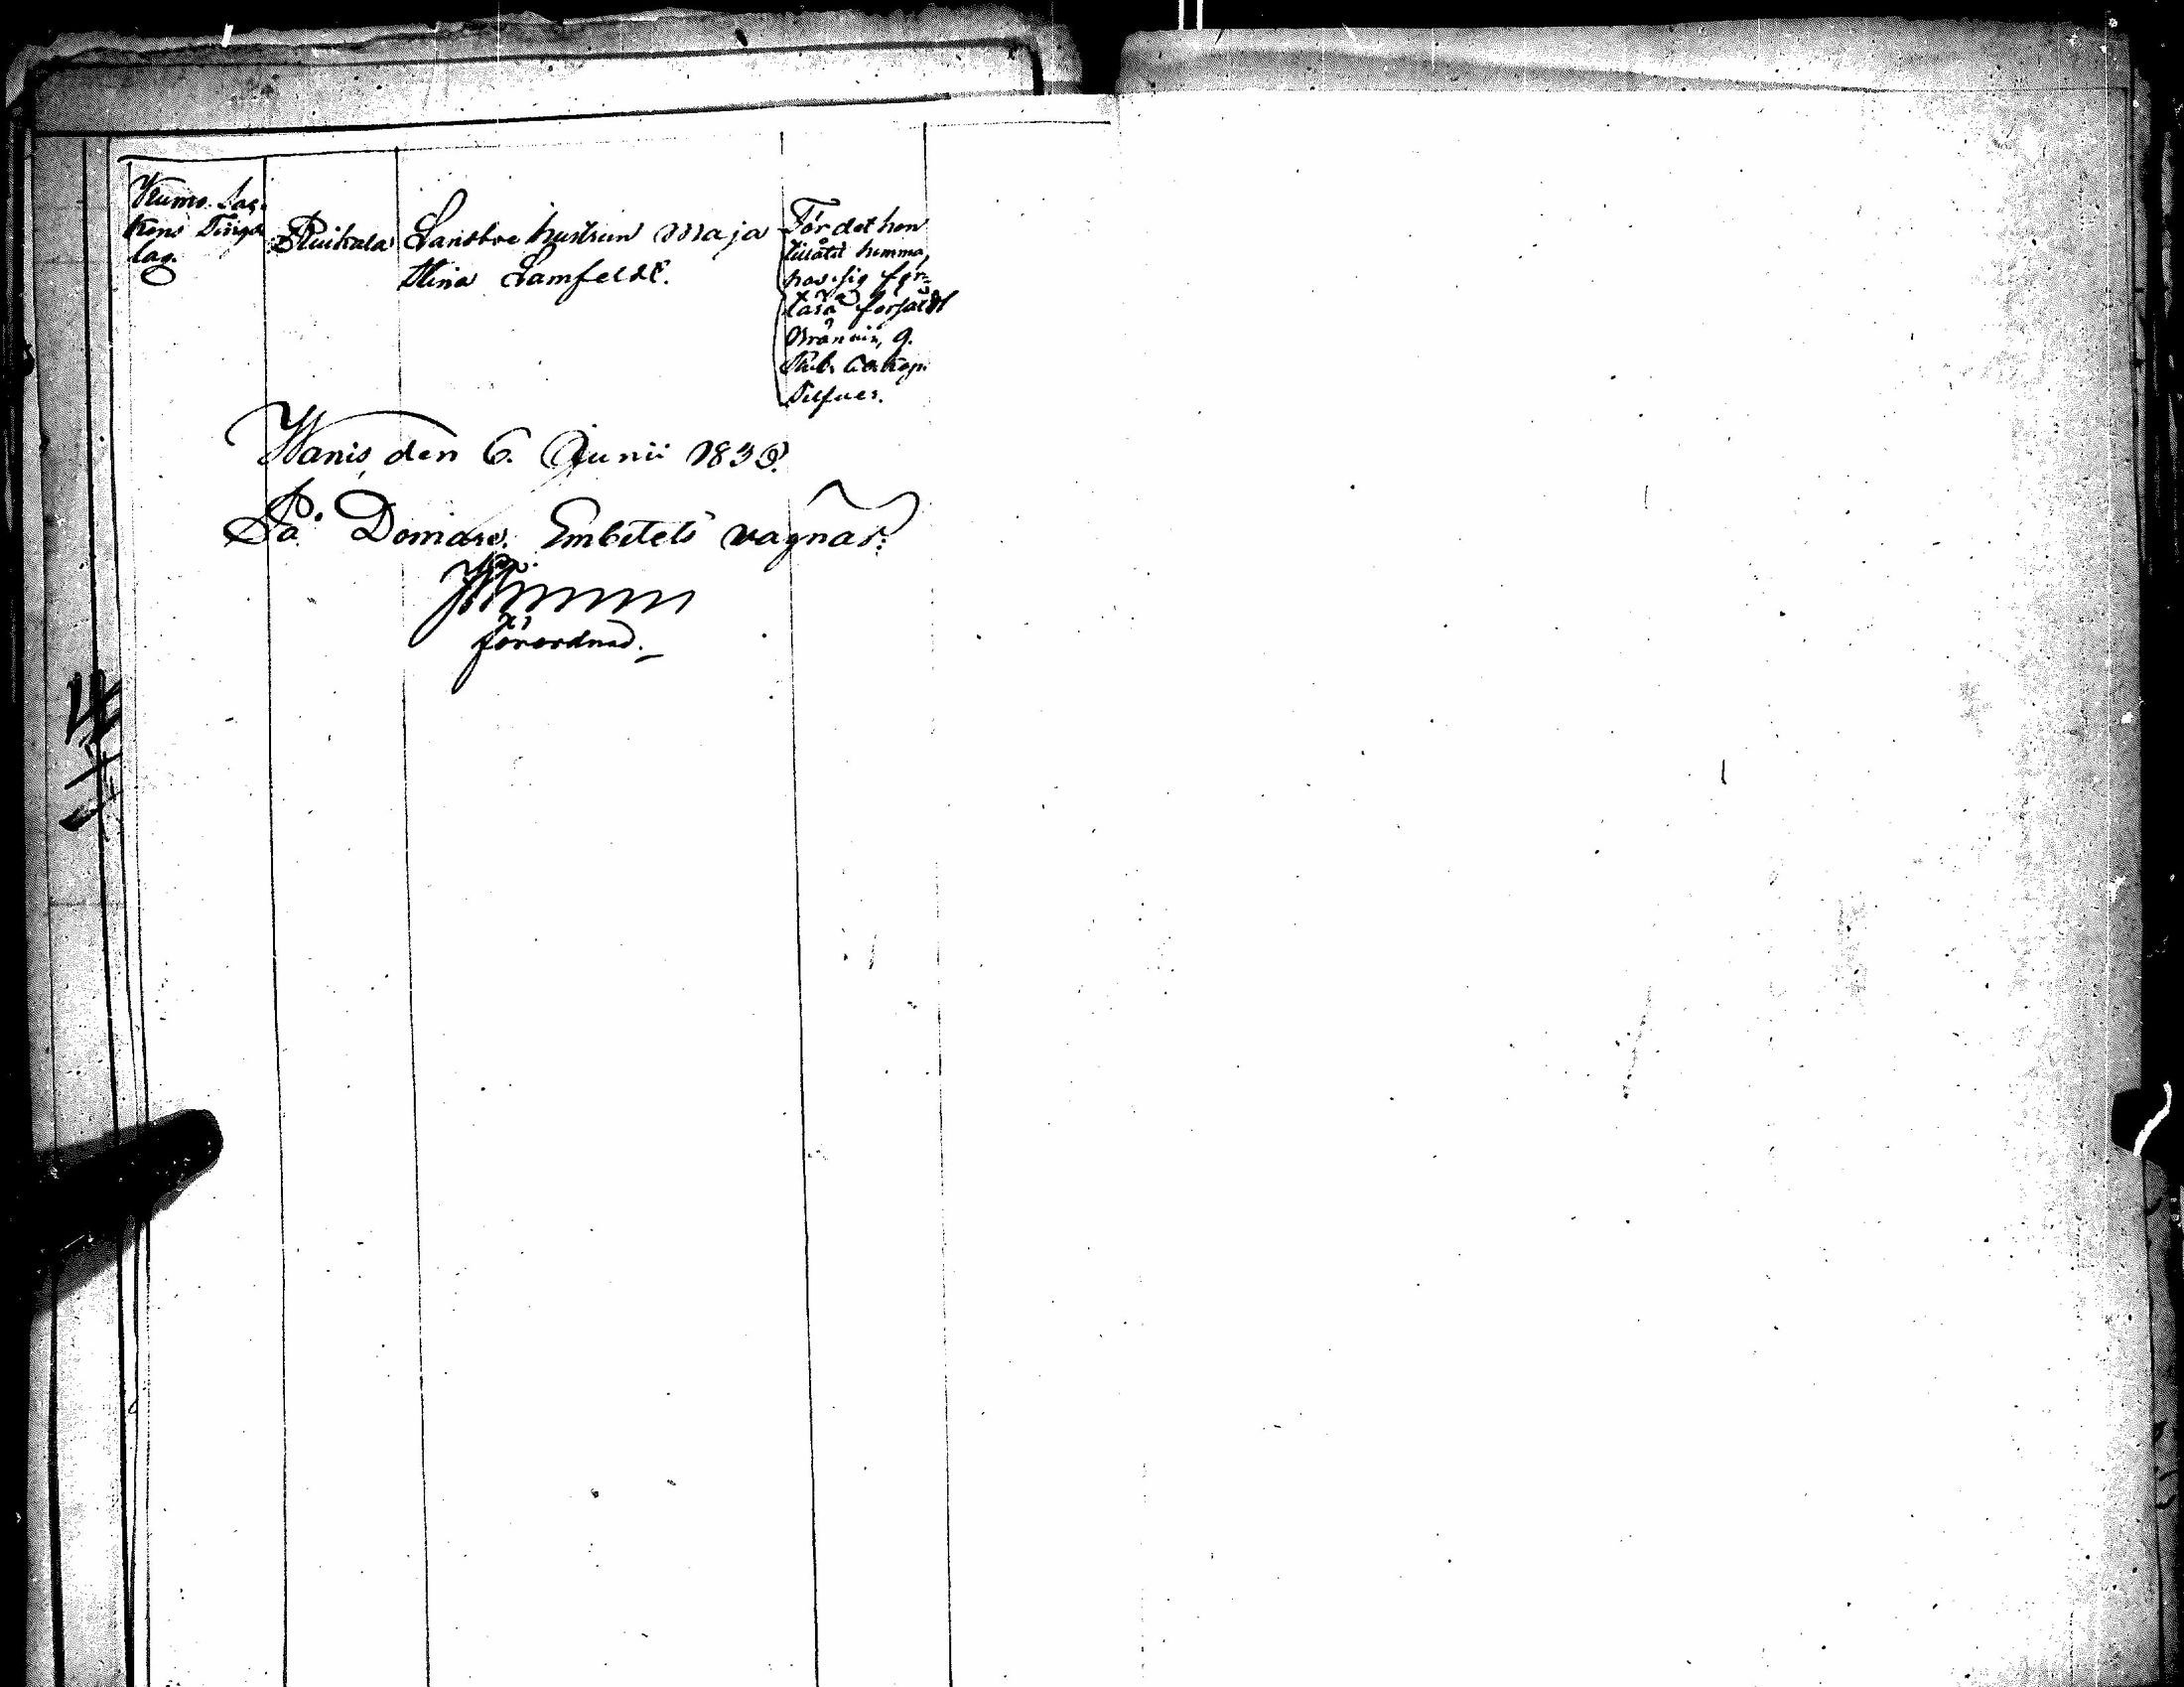 Kumo Soc-
kens Tings
lag.
Ruikala
Landboe hustrun Maja
Stina Lamfeldt.
För det hon
tillåtit hemma
hos sig för-
tära försåldt
Brännvin, 9.
Rub. Cop.
Silfver.
Wanis den 6. Junii 1839.
På Domare Embetets vägnar:
förordnad.